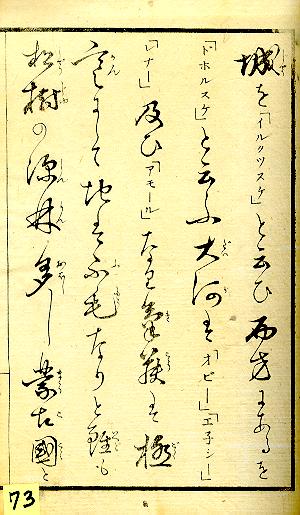 城を「イルクツスケ」と云ひ西方にあるを
「トホルスケ」と云ふ大河は「オビー」「エ子シー」
「レナー」及ひ「アモール」なり氣候は極
寒にして地は不毛なりと雖も
松樹の深林多し蒙古國と
73